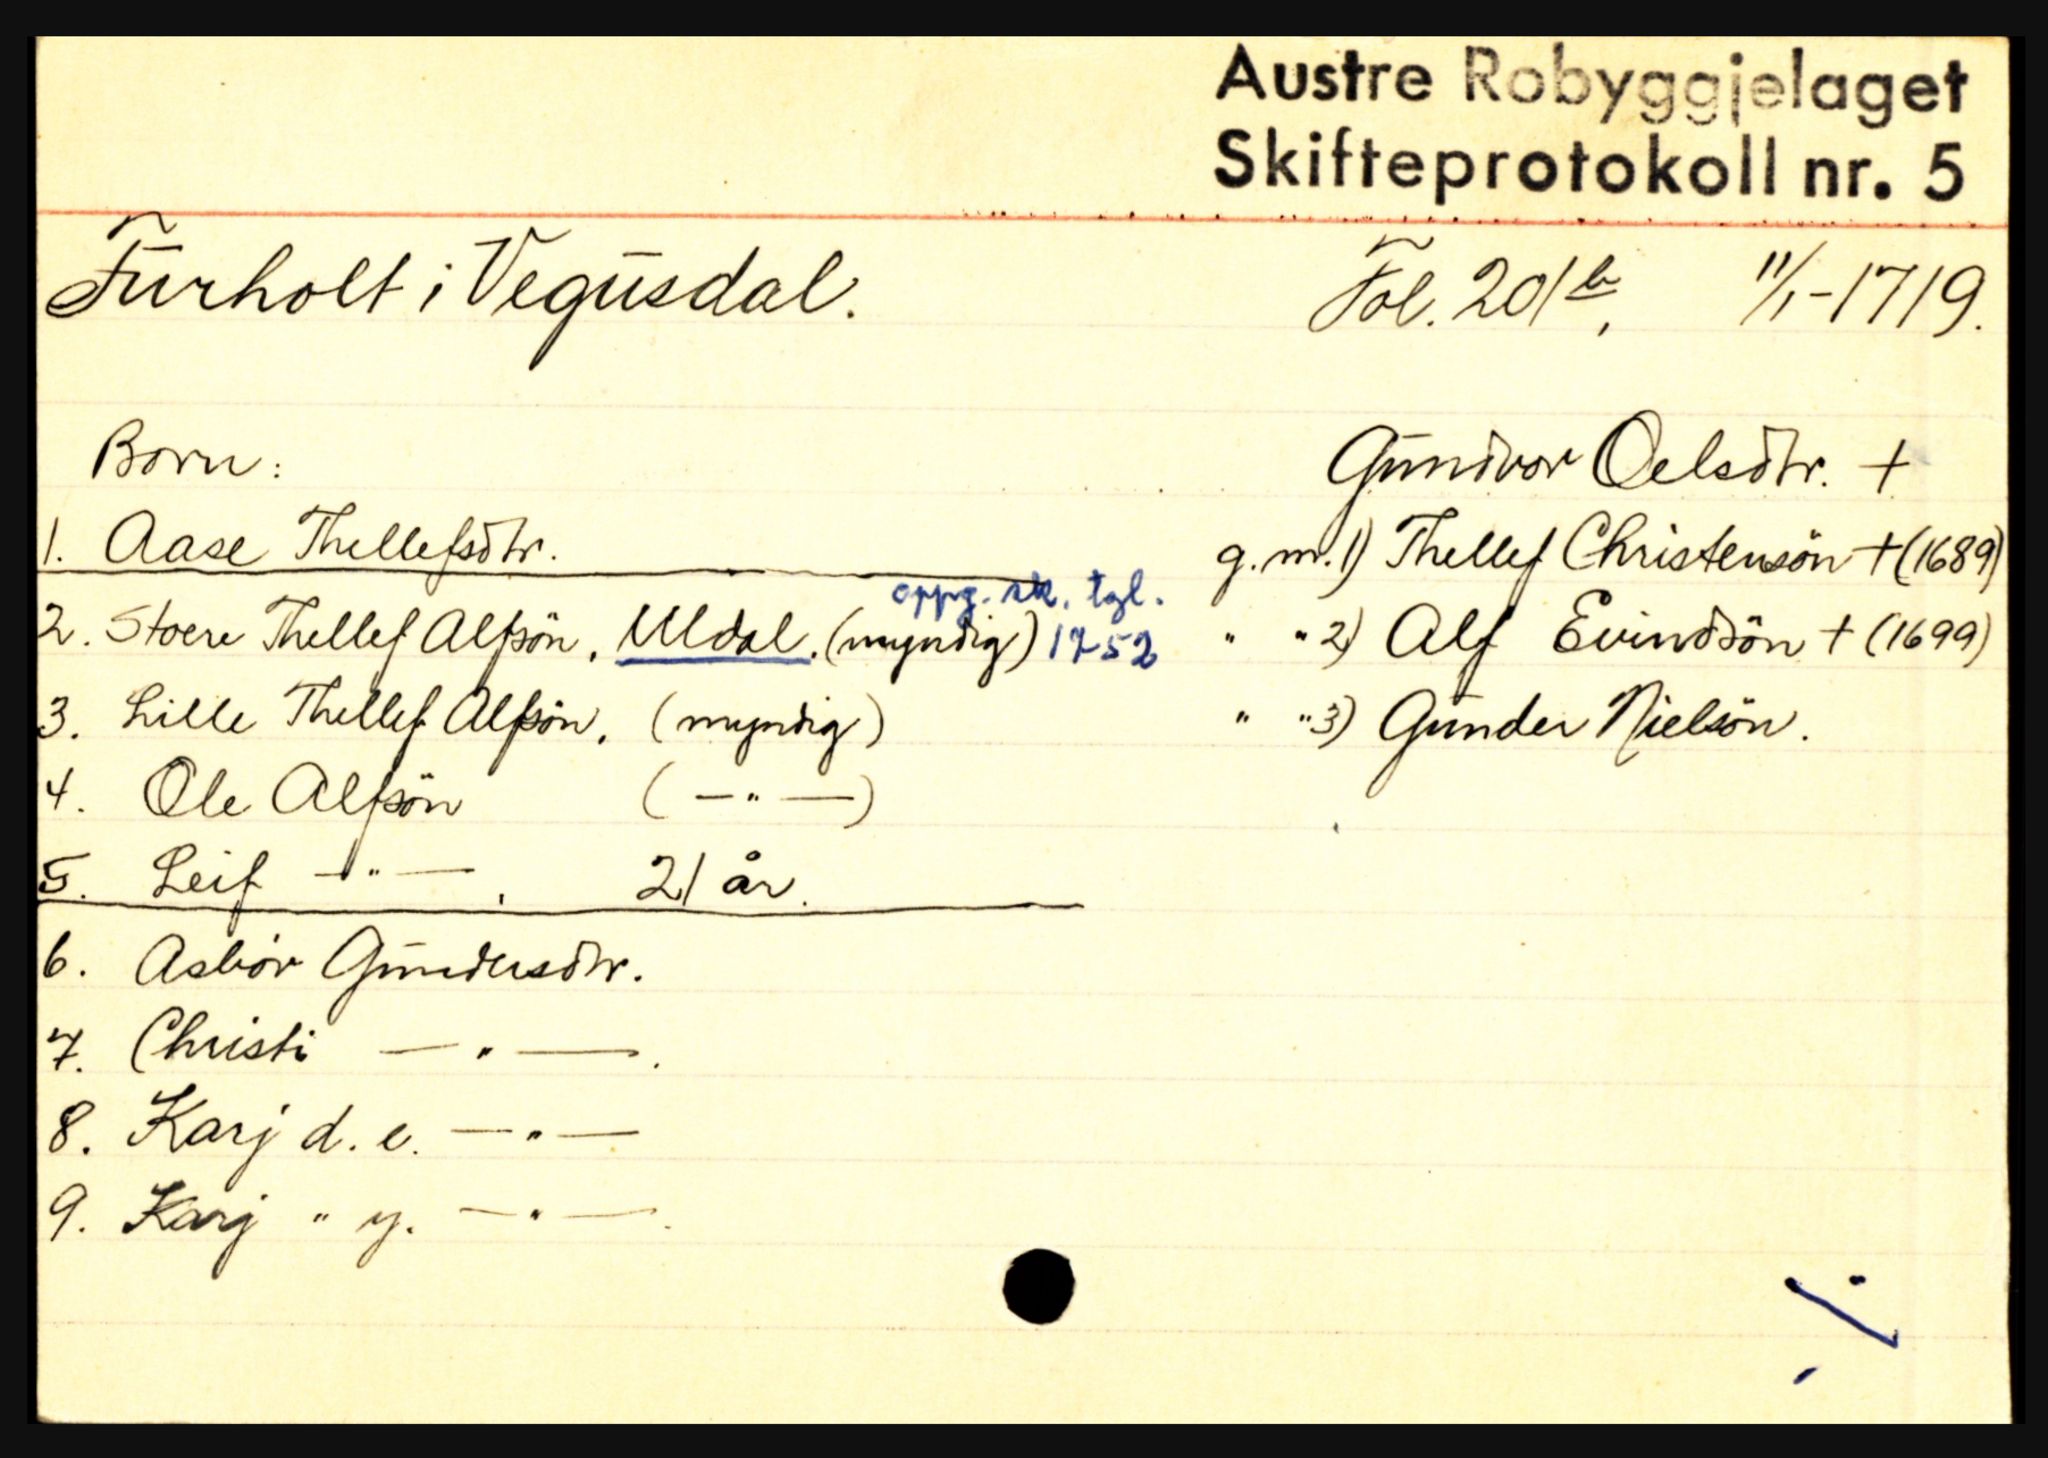 Austre Robyggjelaget
Skifteprotokoll nr. 5
Furholt i Vegusdal. Fol. 201b, 11/1-1719.
Born: Gundvor Oelsdtr. +
1. Aase Thellefsdtr. g. m. 1) Thellef Christensön + (1689)
oppg. sk. tgl.
2. Stoere Thellef Alfsön, Uldal. (myndig) 1752 " " 2) Alf Evindsön + (1699)
3. Lille Thellef Alfsön, (myndig) " " 3) Gunder Nielsön.
4. Ole Alfsön (—"—)
5. Leif —"—, 21 år.
6. Asbör Gundersdtr.
7. Christi —"—.
8. Karj d. e. —"—
9. Karj " y. —"—.